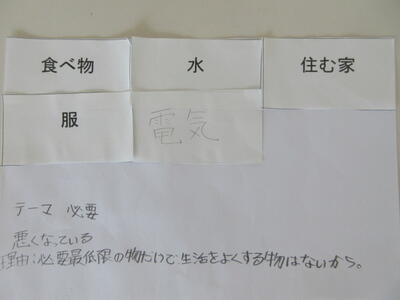 食べ物 水 住む家
服 電気
テーマ 必要
悪くなっている
理由:必要最低限の物だけで生活をよくする物はないから。